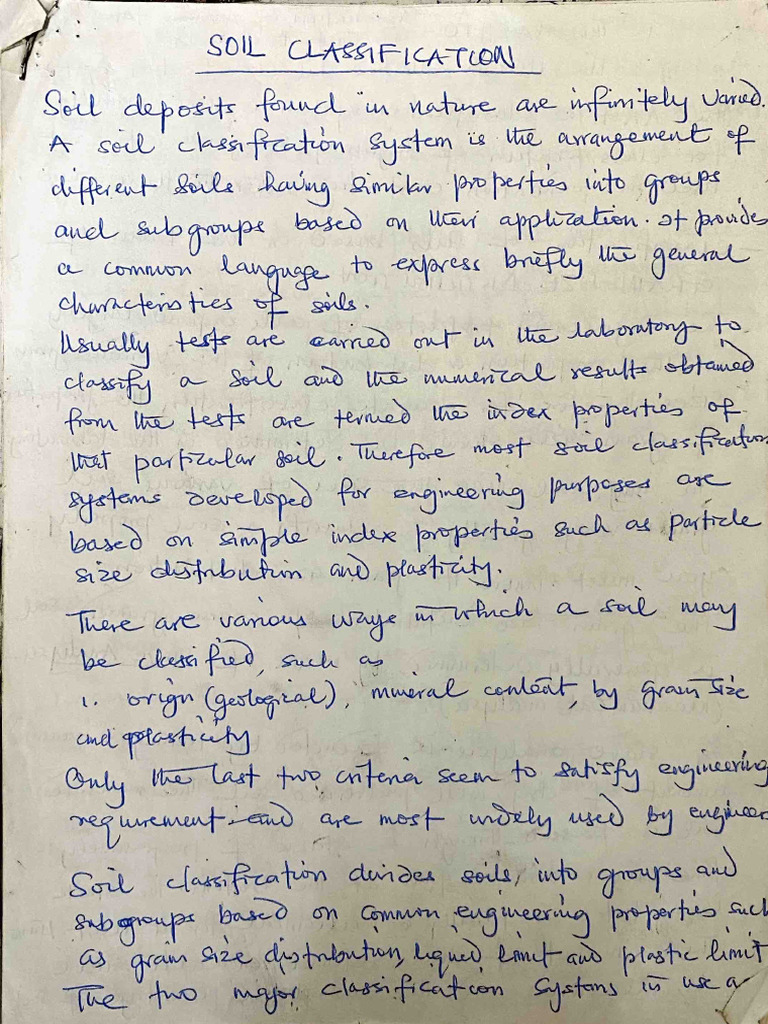 SOIL CLASSIFICATION
Soil deposits found in nature are infinitely varied.
A soil classification system is the arrangement of
different soils having similar properties into groups
and subgroups based on their application. It provides
a common language to express briefly the general
characteristics of soils.
Usually tests are carried out in the laboratory to
classify a soil and the numerical results obtained
from the tests are termed the index properties of
that particular soil. Therefore most soil classification
systems developed for engineering purposes are
based on simple index properties such as particle
size distribution and plasticity.
There are various ways in which a soil may
be classified, such as
1. orign (geological), mineral content, by grain size
and plasticity
Only the last two criteria seem to satisfy engineering
requirement and are most widely used by engineer
Soil classification divides soils, into groups and
subgroups based on common engineering properties such
as grain size distribution, liquid limit and plastic limit
The two major classification systems in use a